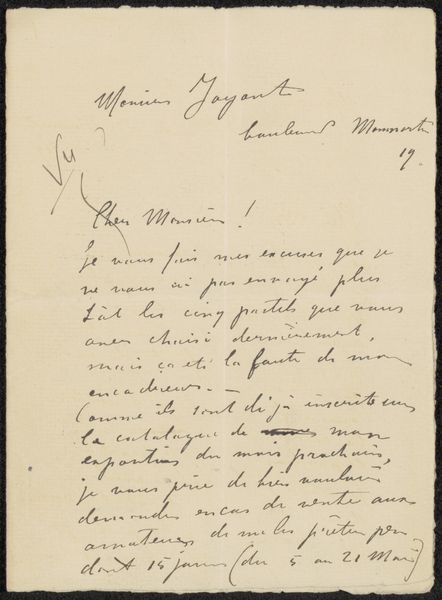 Monsieur Joyant
boulevard Montmartre
19.
Vu
Cher Monsieur!
Je vous fais mes excuses que je
ne vous ai pas envoyé plus
tôt les cinq pastels que vous
avez choisi dernièrement,
mais ça été la faute de mon
encadreur. –
Comme ils sont déjà inscrits
le catalogue de mon
exposition du mois prochain,
je vous prie de bien vouloir
demander en cas de vente aux
amateurs de me les prêter pen
dant 15 jours (du 5 au 21 Mai)